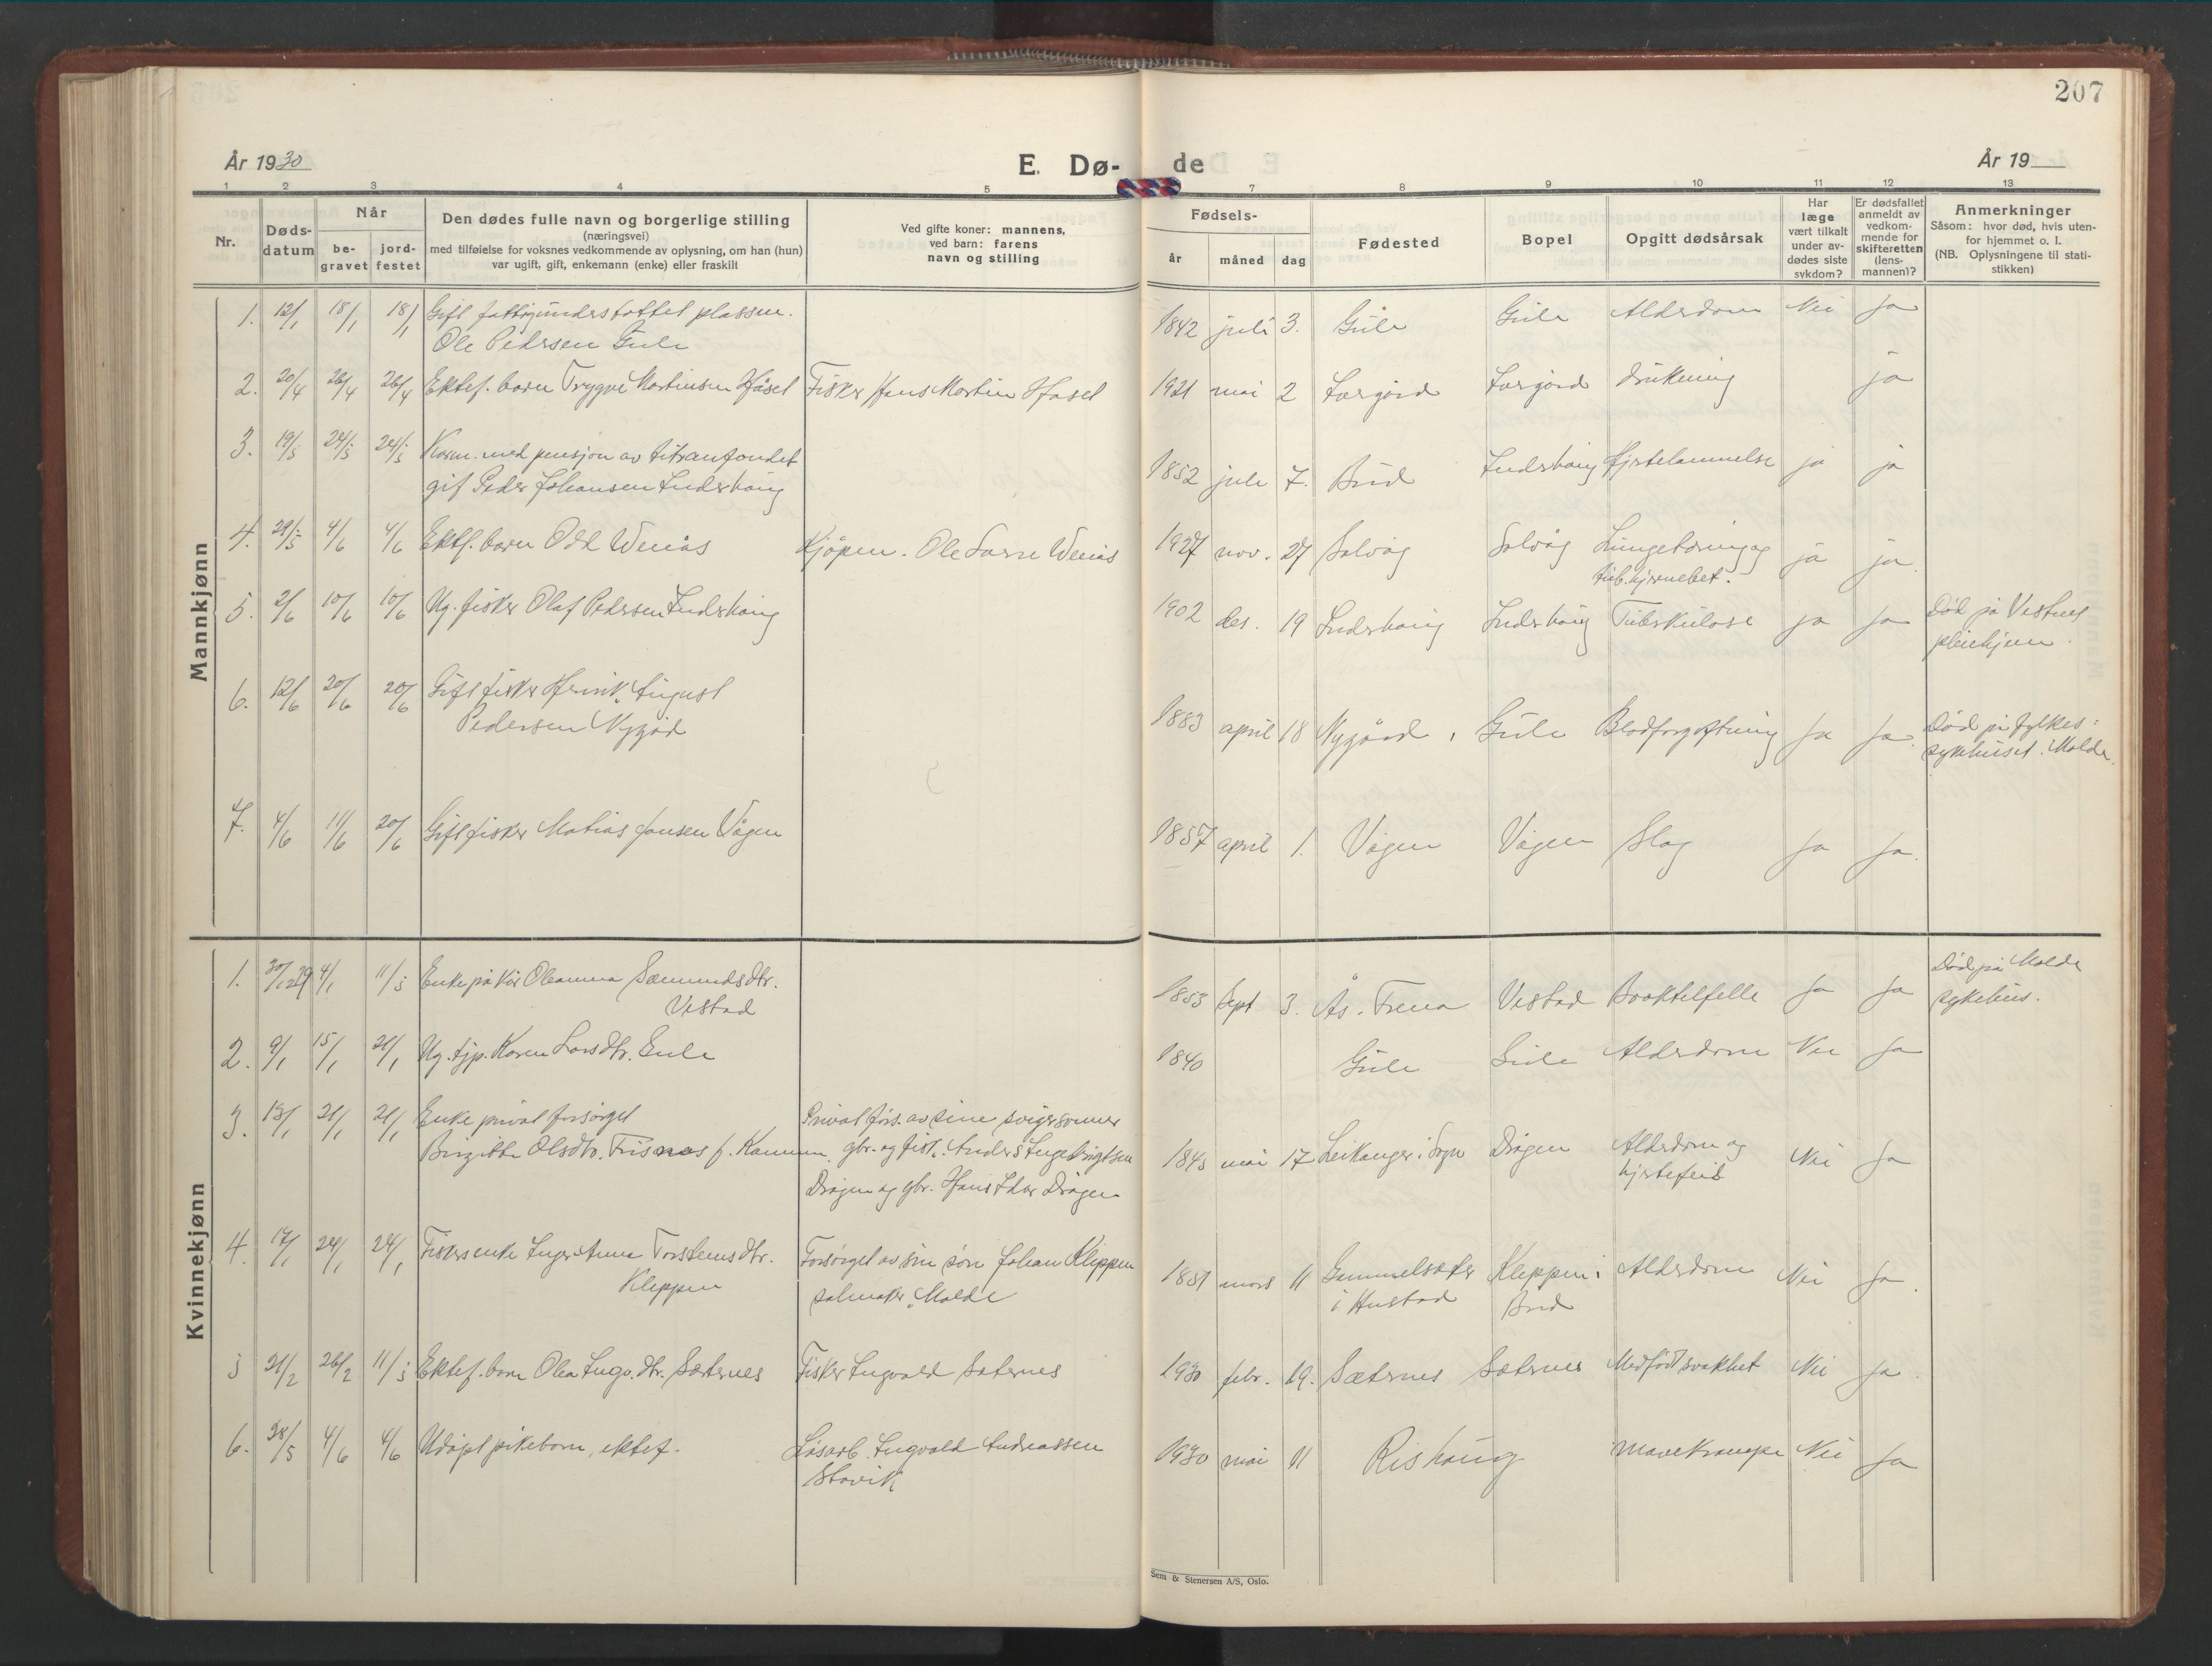 207
År 1930
E. Dø-
de
År 19
1 2 3 4 5
7 8 9 10 11 12 13
Nr.
Døds-
datum
Når
be-
gravet
jord-
festet
Den dødes fulle navn og borgerlige stilling
(næringsvei)
med tilføielse for voksnes vedkommende av oplysning, om han (hun)
var ugift, gift, enkemann (enke) eller fraskilt
Ved gifte koner: mannens,
ved barn: farens
navn og stilling
Fødsels-
år
måned
dag
Fødested
Bopel
Opgitt dødsårsak
Har
læge
vært tilkalt
under av-
dødes siste
sykdom?
Er dødsfallet
anmeldt av
vedkom-
mende for
skifteretten
(lens-
mannen)?
Anmerkninger
Såsom: hvor død, hvis uten-
for hjemmet o. l.
(NB. Oplysningene til stati-
stikken)
Mannkjønn
1. 12/1 18/1 18/1 Gift fattigunderstøttet plassm.
Ole Pedersen Gule
1842 juli 3. Gule Gule Alderdom Nei Ja
2. 20/4 26/4 26/4 Ektef. barn Trygve Martinsen Håsel Fisker Hans Martin Hasel
1921 mai 2 drukning ja
3. 19/5 24/5 24/5 med pensjon av titranfondet
gif Peder Johansen Inderhaug
1852 juli 7. Bud Inderhaug Hjertelammelse ja ja
4. 29/5 4/6 4/6 Ektf. barn Odd Wenås Kjøpm. Ole Wenås
1927 nov. 27 Solvåg Solvåg Lungetæring og
tub. hjernebet. ja ja
5. 2/6 10/6 10/6 Ug. fisker Olaf Pedersen Inderhaug
1902 des. 19 Inderhaug Inderhaug Tuberkulose ja Ja Død på Vestnes
pleiehjem.
6. 12/6 20/6 20/6 Gift fisker Henrik August
Pedersen Nygård
1883 april 18 Nygård, Gule Blodforgiftning Ja Ja Død på fylkes-
sykehuset. Molde.
7. 4/6 11/6 20/6 Gift fisker Matias Jansen Vågen
1857 april 1. Vågen Vågen Slag Ja Ja.
Kvinnekjønn
1. 30/12 29 4/1 11/5 Enke på kår Oleanna Sæmundsdtr.
Vestad
1853 Sept 3. Ås. Fræna Vestad Ja Ja Død på Molde
sykehus.
2. 9/1 15/1 21/1 Ug. tjp. Karen Larsdtr. Gule
1840 Gule Gule Alderdom Nei Ja
3. 13/1 21/1 21/1 Enke privat forsørget
Birgitte Olsdtr. f.
Privat fors. av sine svigersønner
gbr. og fisk. Anders Ingebrigtsen
Drågen og gbr. Hans Drågen
1843 mai 17 Leikanger i Sogn Drågen Alderdom og
hjertefeil Nei Ja
4. 17/1 24/1 24/1 Fiskersenke Inger Anna Torstensdtr.
Kleppen
Forsørget av sin sønn Johan Kleppen
salmaker, Molde
1851 mars 11 Gammelsæter
i Hustad Kleppen i
Bud Alderdom Nei Ja.
5 21/2 26/2 11/5 Ektef. barn Olea Ingv. dtr. Sæternes Fisker Ingvald Sæternes
1930 febr. 19. Sæternes Sæternes Medfødt svakhet Nei Ja.
6. 28/5 4/6 4/6 Udøpt pikebarn, ektef. Løsarb. Ingvald Andreassen
Stavik
1930 mai 11 Rishaug Mavekrampe Nei Ja
Sem & Stenersen A/S, Oslo.